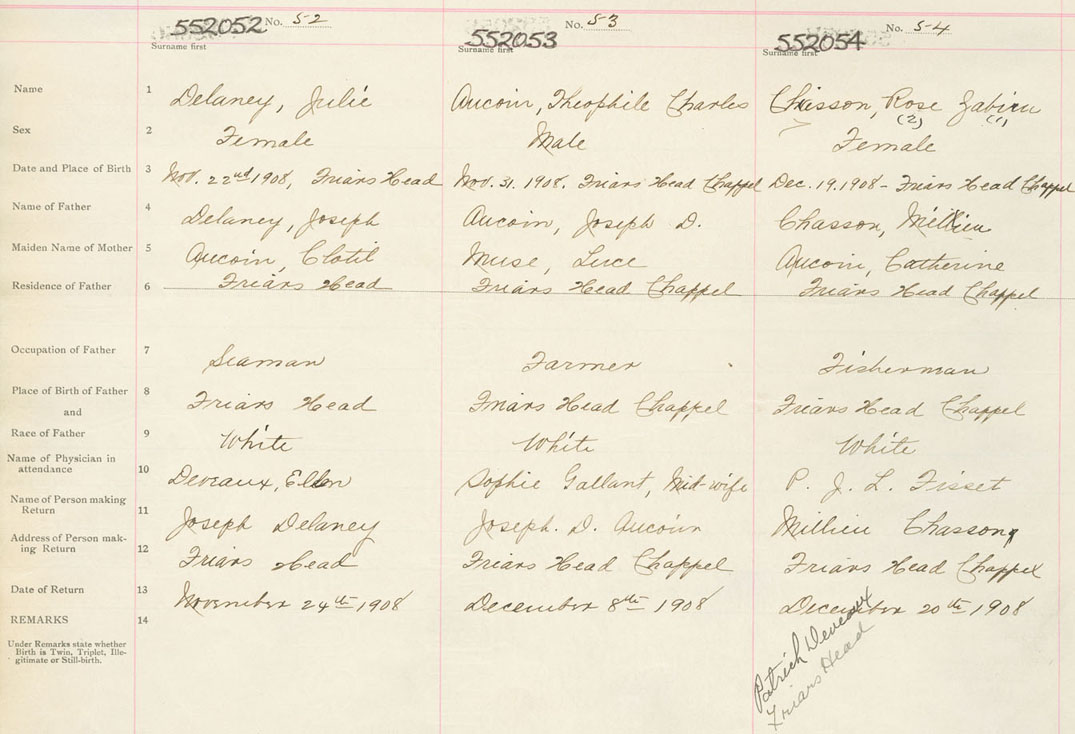 552052 No. 52
552053 No. 53
552054 No. 54
Surname first
Surname first
Surname first
Name 1 Delaney, Julie Aucoin, Theophile Charles Chiasson, Rose Zabien
(2) (1)
Sex 2 Female Male Female
Date and Place of Birth 3 Nov. 22nd 1908, Friars Head Nov. 31. 1908. Friars Head Chappel Dec. 19. 1908 - Friars Head Chappel
Name of Father 4 Delaney, Joseph Aucoin, Joseph D. Chasson, Millieu
Maiden Name of Mother 5 Aucoin, Clotil Muse, Luce Aucoin, Catherine
Residence of Father 6 Friars Head Friars Head Chappel Friars Head Chappel
Occupation of Father 7 Seaman Farmer Fisherman
Place of Birth of Father 8 Friars Head Friars Head Chappel Friars Head Chappel
and
Race of Father 9 White White White
Name of Physician in
attendance 10 Deveaux, Ellen Sophie Gallant, Mid-wife P. J. L. Fisset
Name of Person making
Return 11 Joseph Delaney Joseph. D. Aucoin Millieu Chasson
Address of Person mak-
ing Return 12 Friars Head Friars Head Chappel Friars Head Chappel
Date of Return 13 November 24th 1908 December 8th 1908 December 20th 1908
REMARKS 14
Under Remarks state whether
Birth is Twin, Triplet, Ille-
gitimate or Still-birth.
Patrich Deveaux
Friars Head